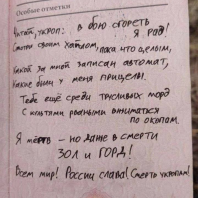 Особые отметки
Читай, укроп: в бою сгореть
Я РАД!
своим хайлом, пока что целым,
Какой за мной записан автомат,
Какие были у меня прицелы.
Тебе ещё среди трусливых морд
С культями рваными вжиматься
по окопам.
Я мёртв – но даже в смерти
ЗОЛ и ГОРД!
Всем мир! России слава! Смерть укропам!